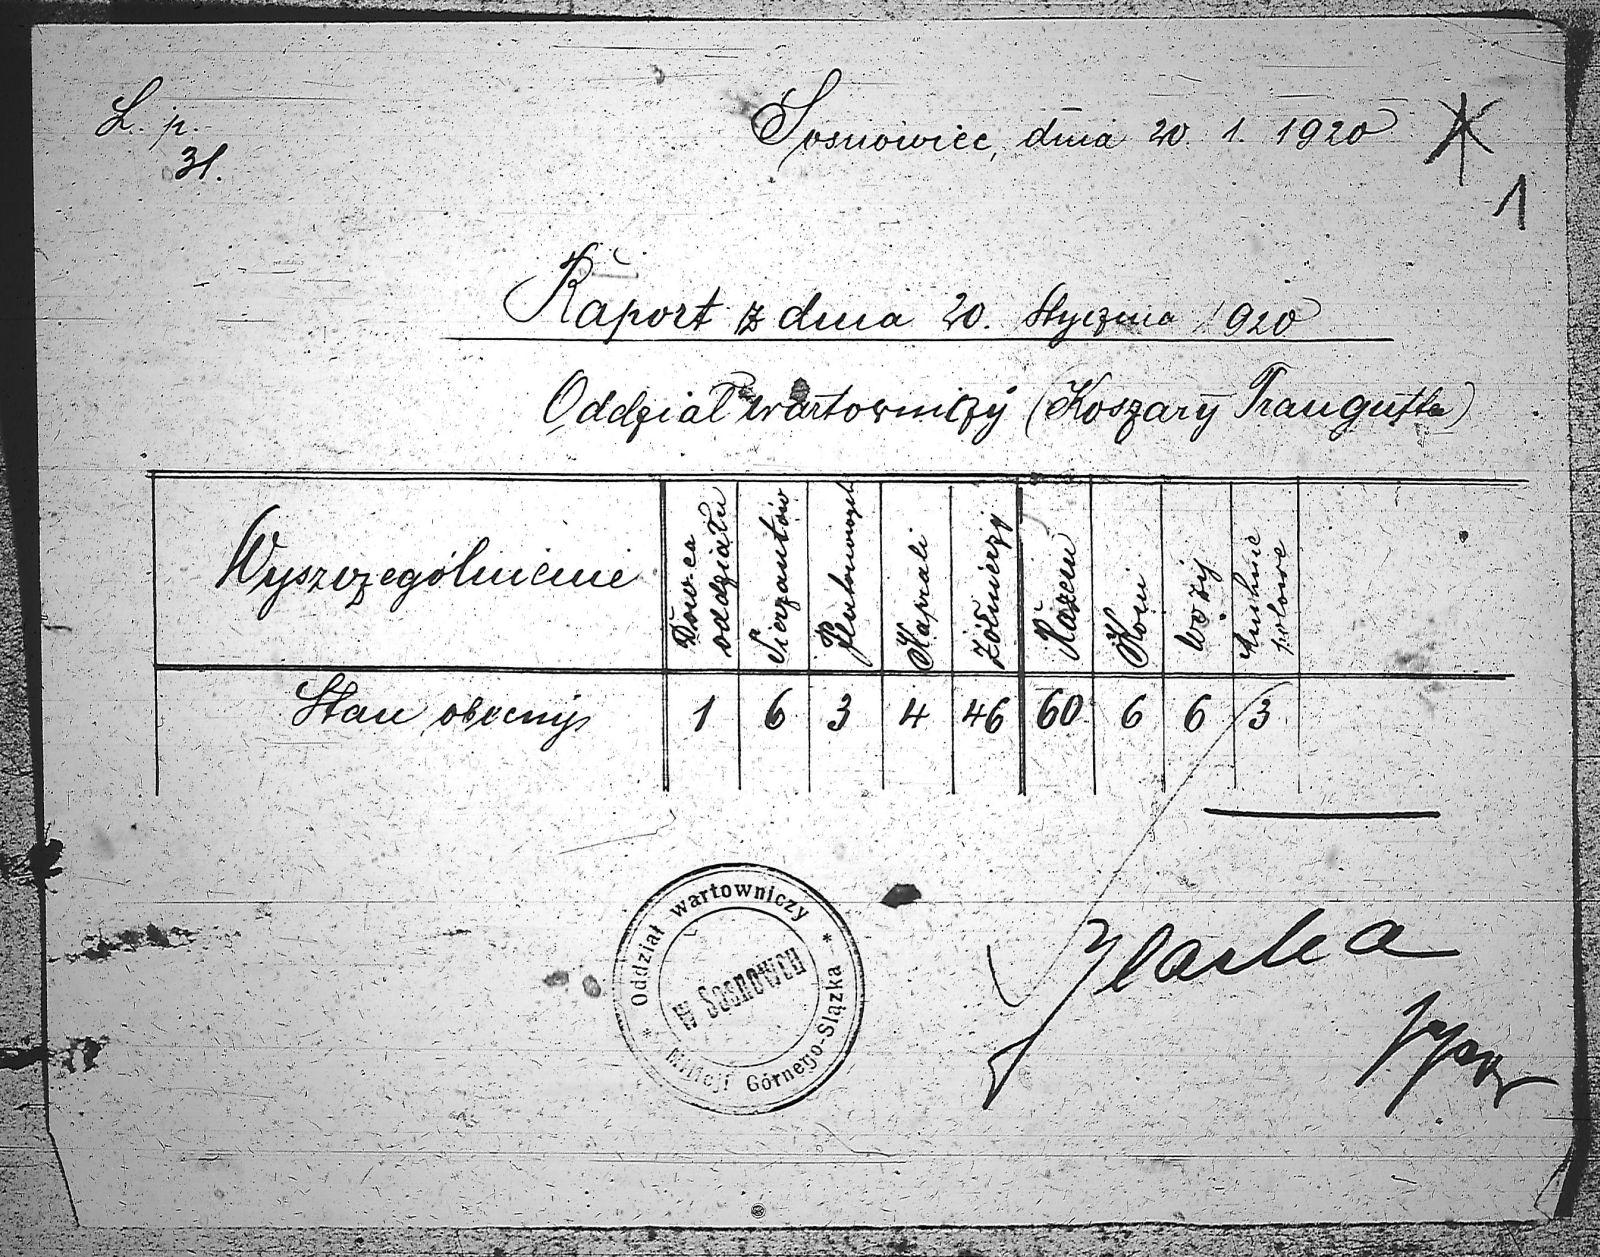 L. p.
31.
Sosnowiec, dnia 20. 1. 1920
1
Raport z dnia 20. Stycznia 1920
Oddział wartowniczy (Koszary Traugutta)
Wyszczególnienie
Dowca oddziału
Sierżantów
Plutonowych
Kaprali
Żółnierzy
Razem
Koni
Wozy
Kuchnie polowe
Stan obecny 1 6 3 4 46 60 6 6 3
Oddział wartowniczy
w Sosnowcu
Milicji Górnego-Slązka